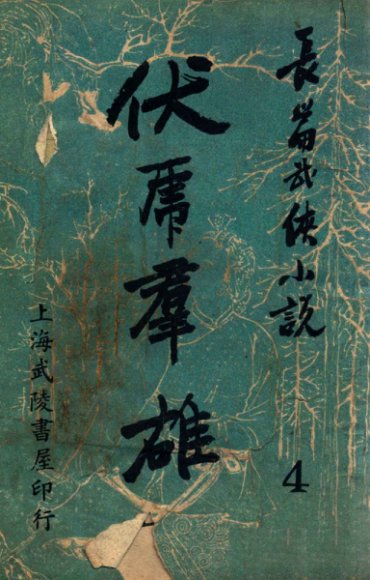 長篇武俠小說
4
伏虎羣雄
上海武陵書屋印行